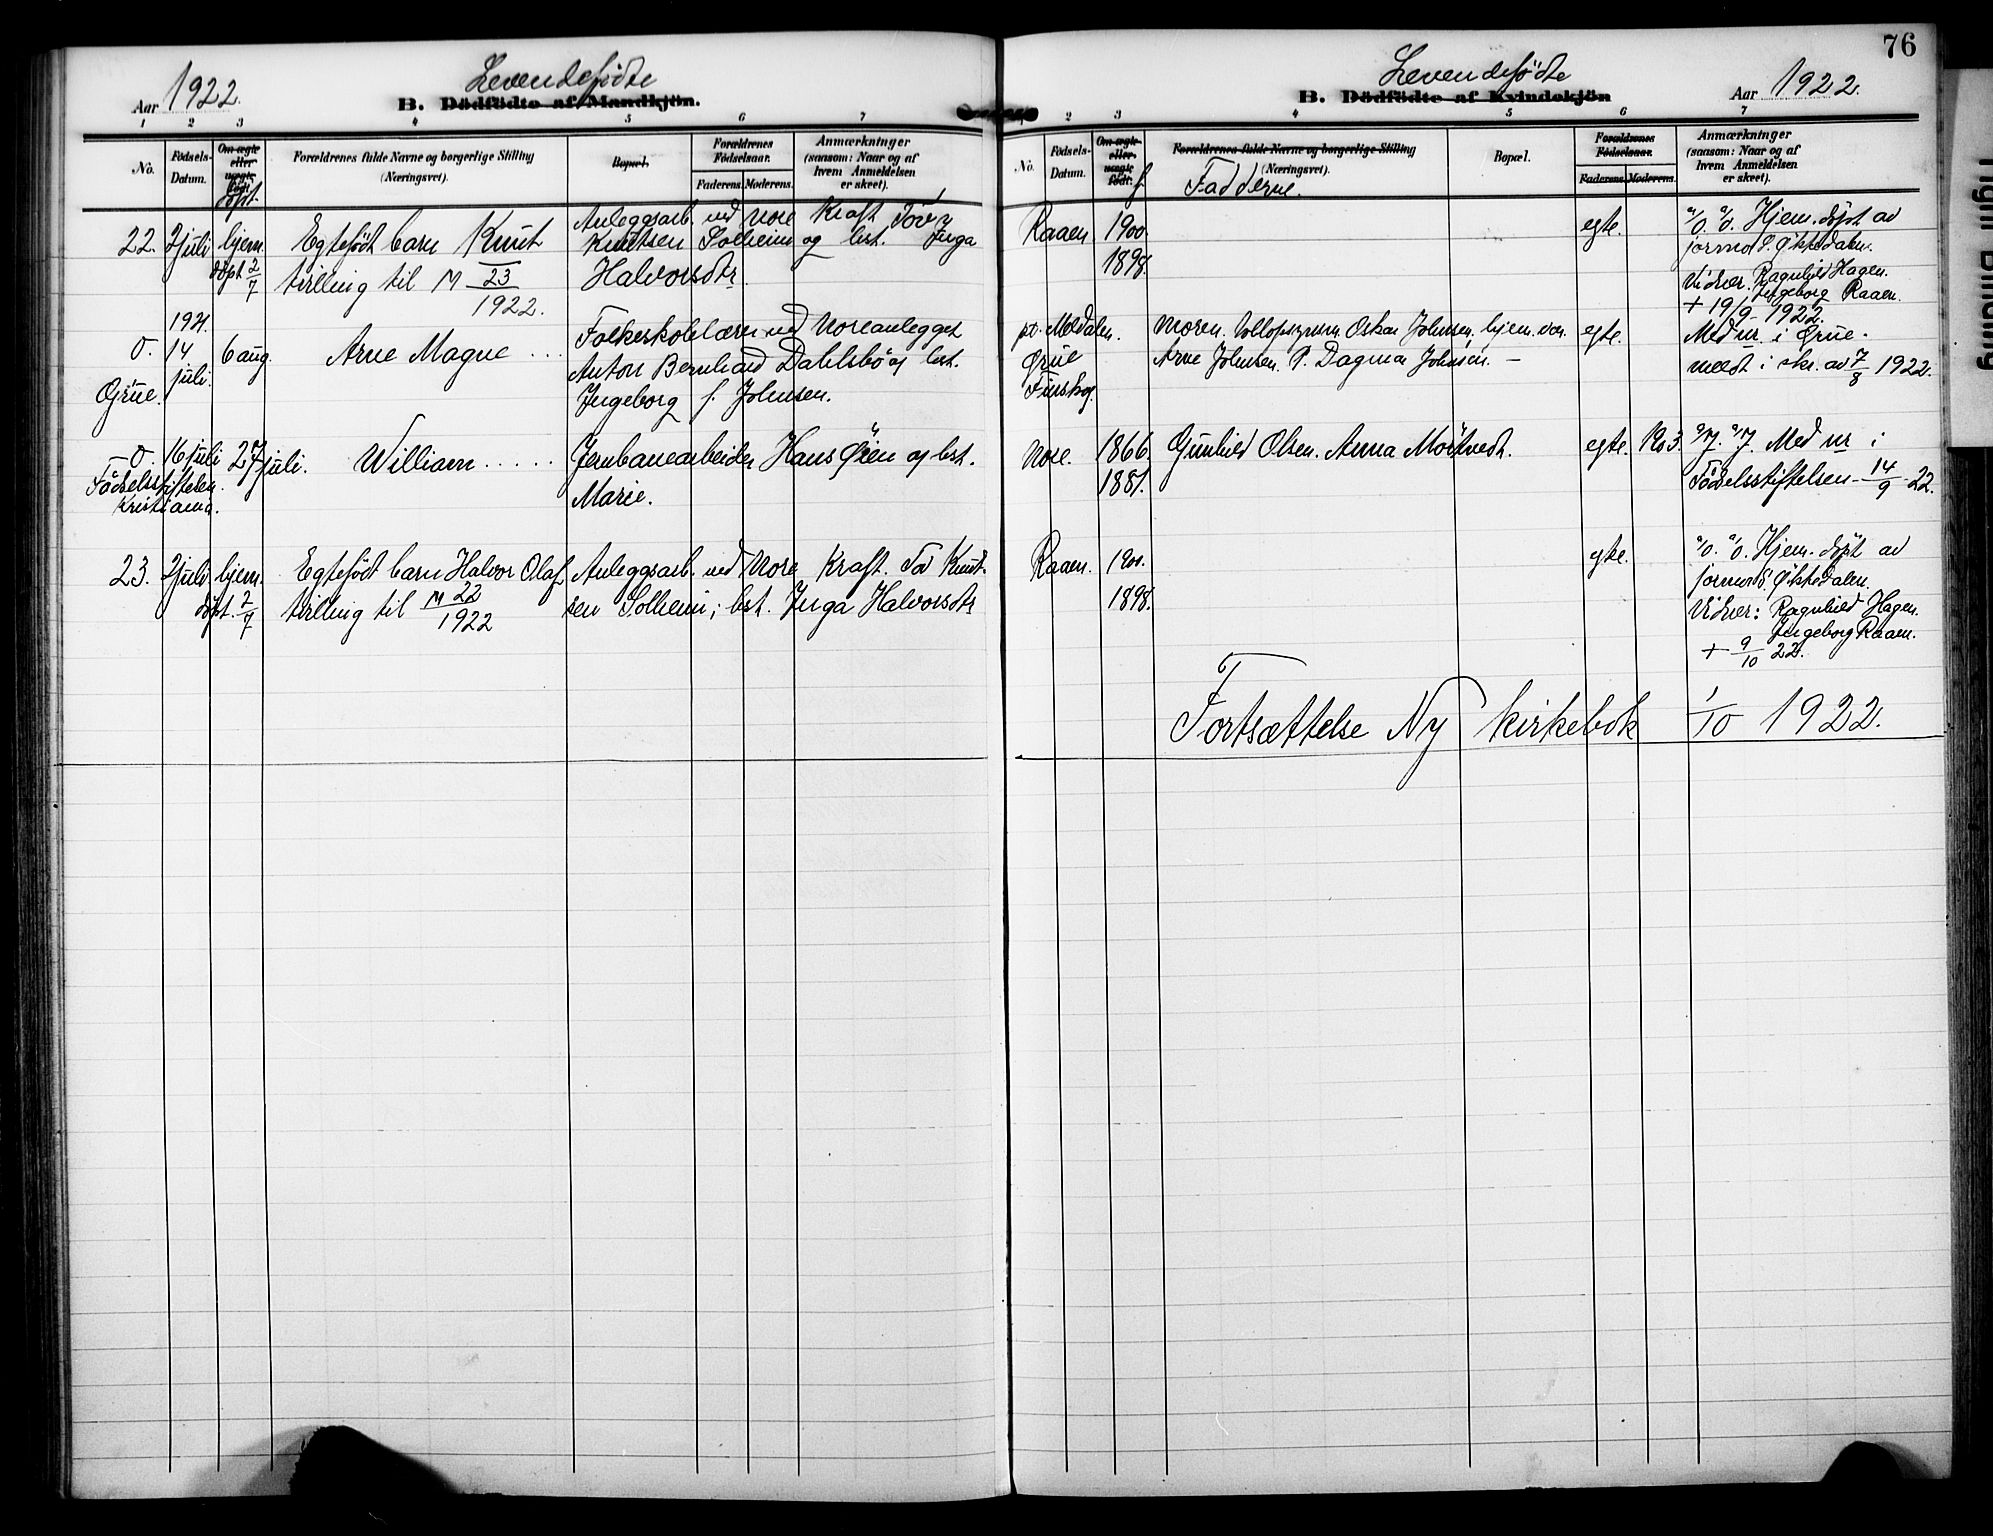 Aar 1922.
Levendefödte
B. Dödfödte af Mandkjön.
1 2 3 4 5 6 7
No.
Födsels-Datum.
Om ægte eller uægte födt.
döpt.
Forældrenes fulde Navne og borgerlige Stilling (Næringsvei).
Bopæl.
Forældrenes Födselsaar.
Faderens. Moderens.
Anmærkninger (saasom: Naar og af hvem Anmeldelsen er skeet).
22. 2 juli hjem. Egtefödt barn Knut
döpt 2/7 tvilling til M 23/1922.
Anleggsarb. ved Nore Kraft Tov
Knutsen Solheim og hst. Inga
Halvorsdtr.
1921.
0. 14 juli. 6 aug. Arne Magne ...
Grue.
Folkeskolelærer ved Noreanlegget
Anton Bernhard Dahlsbö og hst.
Ingeborg f. Johnsen.
0. 16 juli 27 juli. William .....
Födselsstiftelsen
Kristiania.
Jernbanearbeider Hans Öien og hst.
Marie.
23. 2 juli hjem. Egtefödt barn Halvor Olaf
döpt. 2/7 tvilling til M 22/1922
Anleggsarb. ved Nore Kraft. Tov Knut-
sen Solheim; hst. Inga Halvorsdtr
76
Levendefödte
B. Dödfödte af Kvindekjön
Aar 1922.
2 3 4 5 6 7
No.
Födsels-Datum.
Om ægte eller uægte födt.
f.
Forældrenes fulde Navne og borgerlige Stilling (Næringsvei).
Fadderne.
Bopæl.
Forældrenes Födselsaar.
Faderens. Moderens.
Anmærkninger (saasom: Naar og af hvem Anmeldelsen er skeet).
Raaen 1900. egte. Hjem. döpt av
1898. jormod. Ökstedalen.
Vidner. Ragnhild Hagen.
Ingeborg Raaen.
+ 19/9 - 1922.
pt. Moldalen. Moren. Oskar Johnsen, hjem. egte. Med nr. i Grue.
Grue Arne Johnsen. P. Dagmar Johnsen. — meldt i skr. av 7/8 1922.
Finskog.
Nore. 1866. Gunhild Olsen. Anna Mörtvedt. egte. No 3. Med nr i
1881. Födselsstiftelsen 14/9 22.
Raaen. 1900. egte. Hjem. döpt av
1898. jormod Ökstedalen
Vidner: Ragnhild Hagen.
Ingeborg Raaen.
+ 9/10 22.
Fortsættelse Ny kirkebok 1/10 1922.
Tight Binding